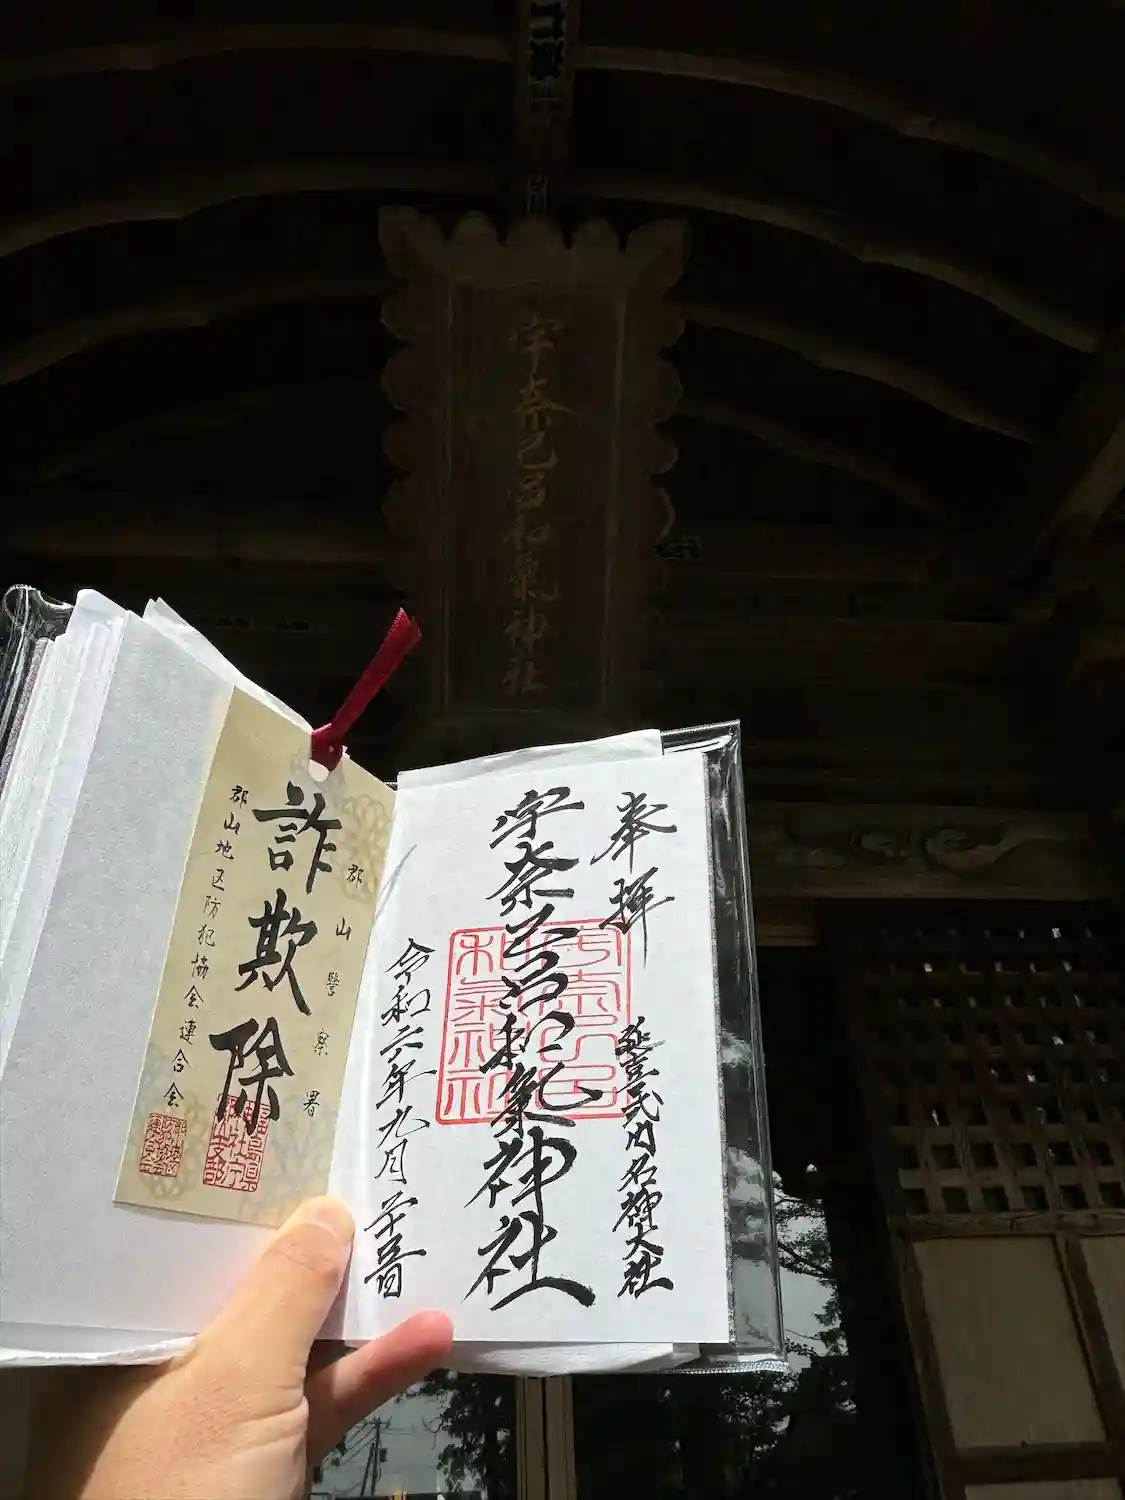 宇奈己呂和氣神社
奉拝
延喜式内名神大社
宇奈己呂和気神社
令和六年九月二十五日
詐欺除
郡山警察署
郡山地区防犯協会連合会